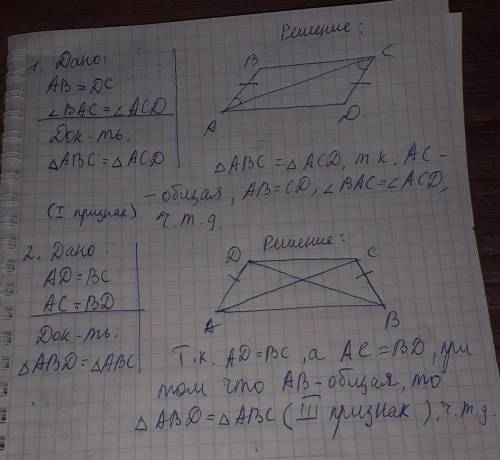 1. Дано:
AB = DC
∠BAC = ∠ACD
Док-ть:
△ABC = △ACD
(I признак)
Решение:
B
C
A
D
△ABC = △ACD, т.к. AC -
- общая, AB = CD, ∠BAC = ∠ACD,
ч.т.д.
2. Дано:
AD = BC
AC = BD
Док-ть:
△ABD = △ABC
Решение:
D
C
A
B
Т.к. AD = BC, а AC = BD, при
том что AB - общая, то
△ABD = △ABC (III признак), ч.т.д.